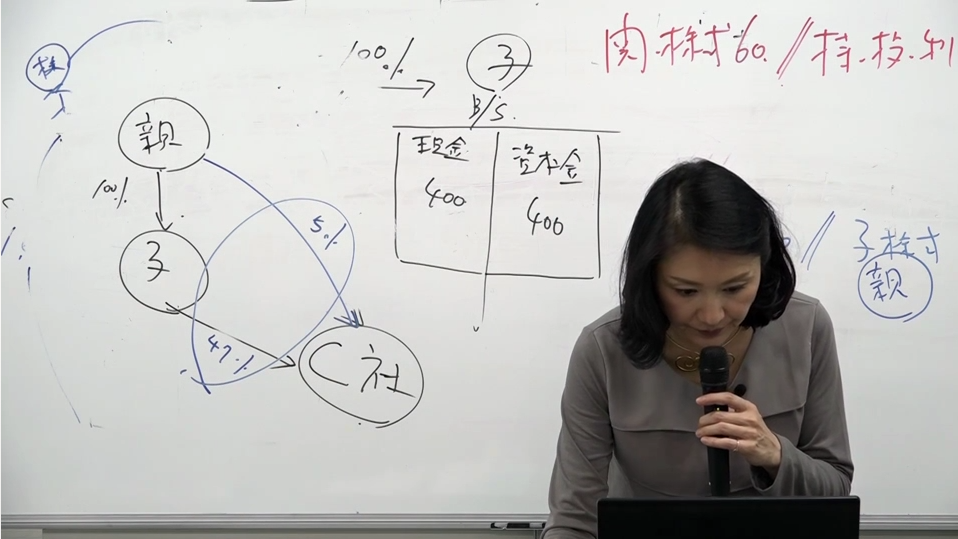 100%
子
関.株式 60 // 持.投.利
株
B/S.
親
現金
資本金
100%
400
400
5%
子
// 子株式
親
47%
C社